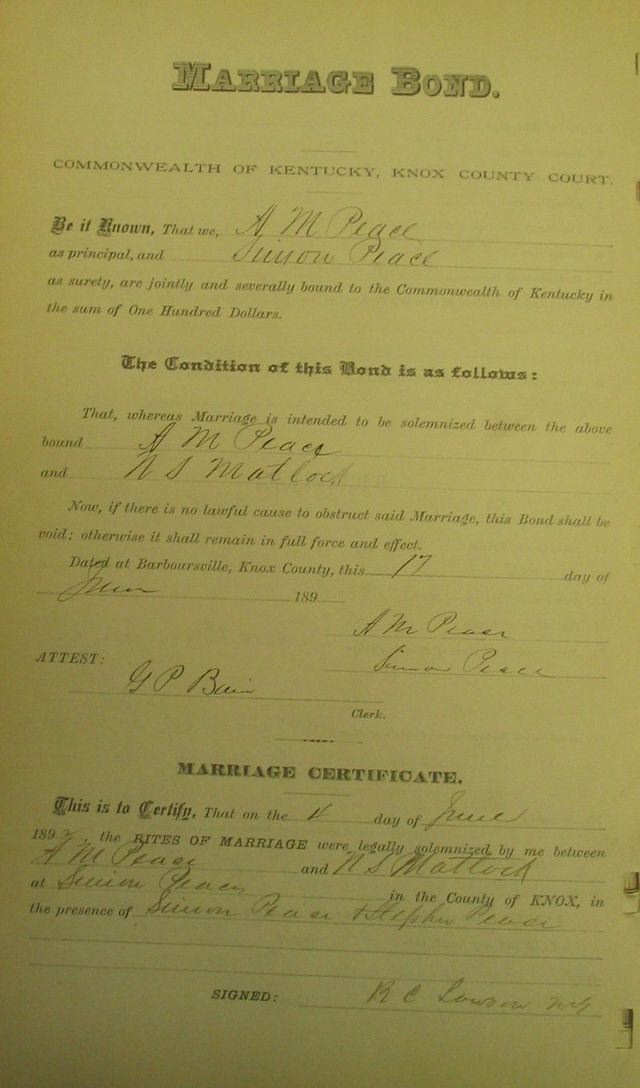 MARRIAGE BOND.
COMMONWEALTH OF KENTUCKY, KNOX COUNTY COURT.
Be it Known, That we, A M Peace
as principal, and Simon Peace
as surety, are jointly and severally bound to the Commonwealth of Kentucky in
the sum of One Hundred Dollars.
The Condition of this Bond is as follows:
That, whereas Marriage is intended to be solemnized between the above
bound A M Peace
and N S Matlock
Now, if there is no lawful cause to obstruct said Marriage, this Bond shall be
void; otherwise it shall remain in full force and effect.
Dated at Barboursville, Knox County, this 17 day of
June 189
A M Peace
ATTEST: Simon Peace
G P Bain
Clerk.
MARRIAGE CERTIFICATE.
This is to Certify, That on the day of June
189 , the RITES OF MARRIAGE were legally solemnized by me between
A M Peace and N S Matlock
at Simon Peaces in the County of KNOX, in
the presence of Simon Peace & Stephen Peace
SIGNED: R C Lawson